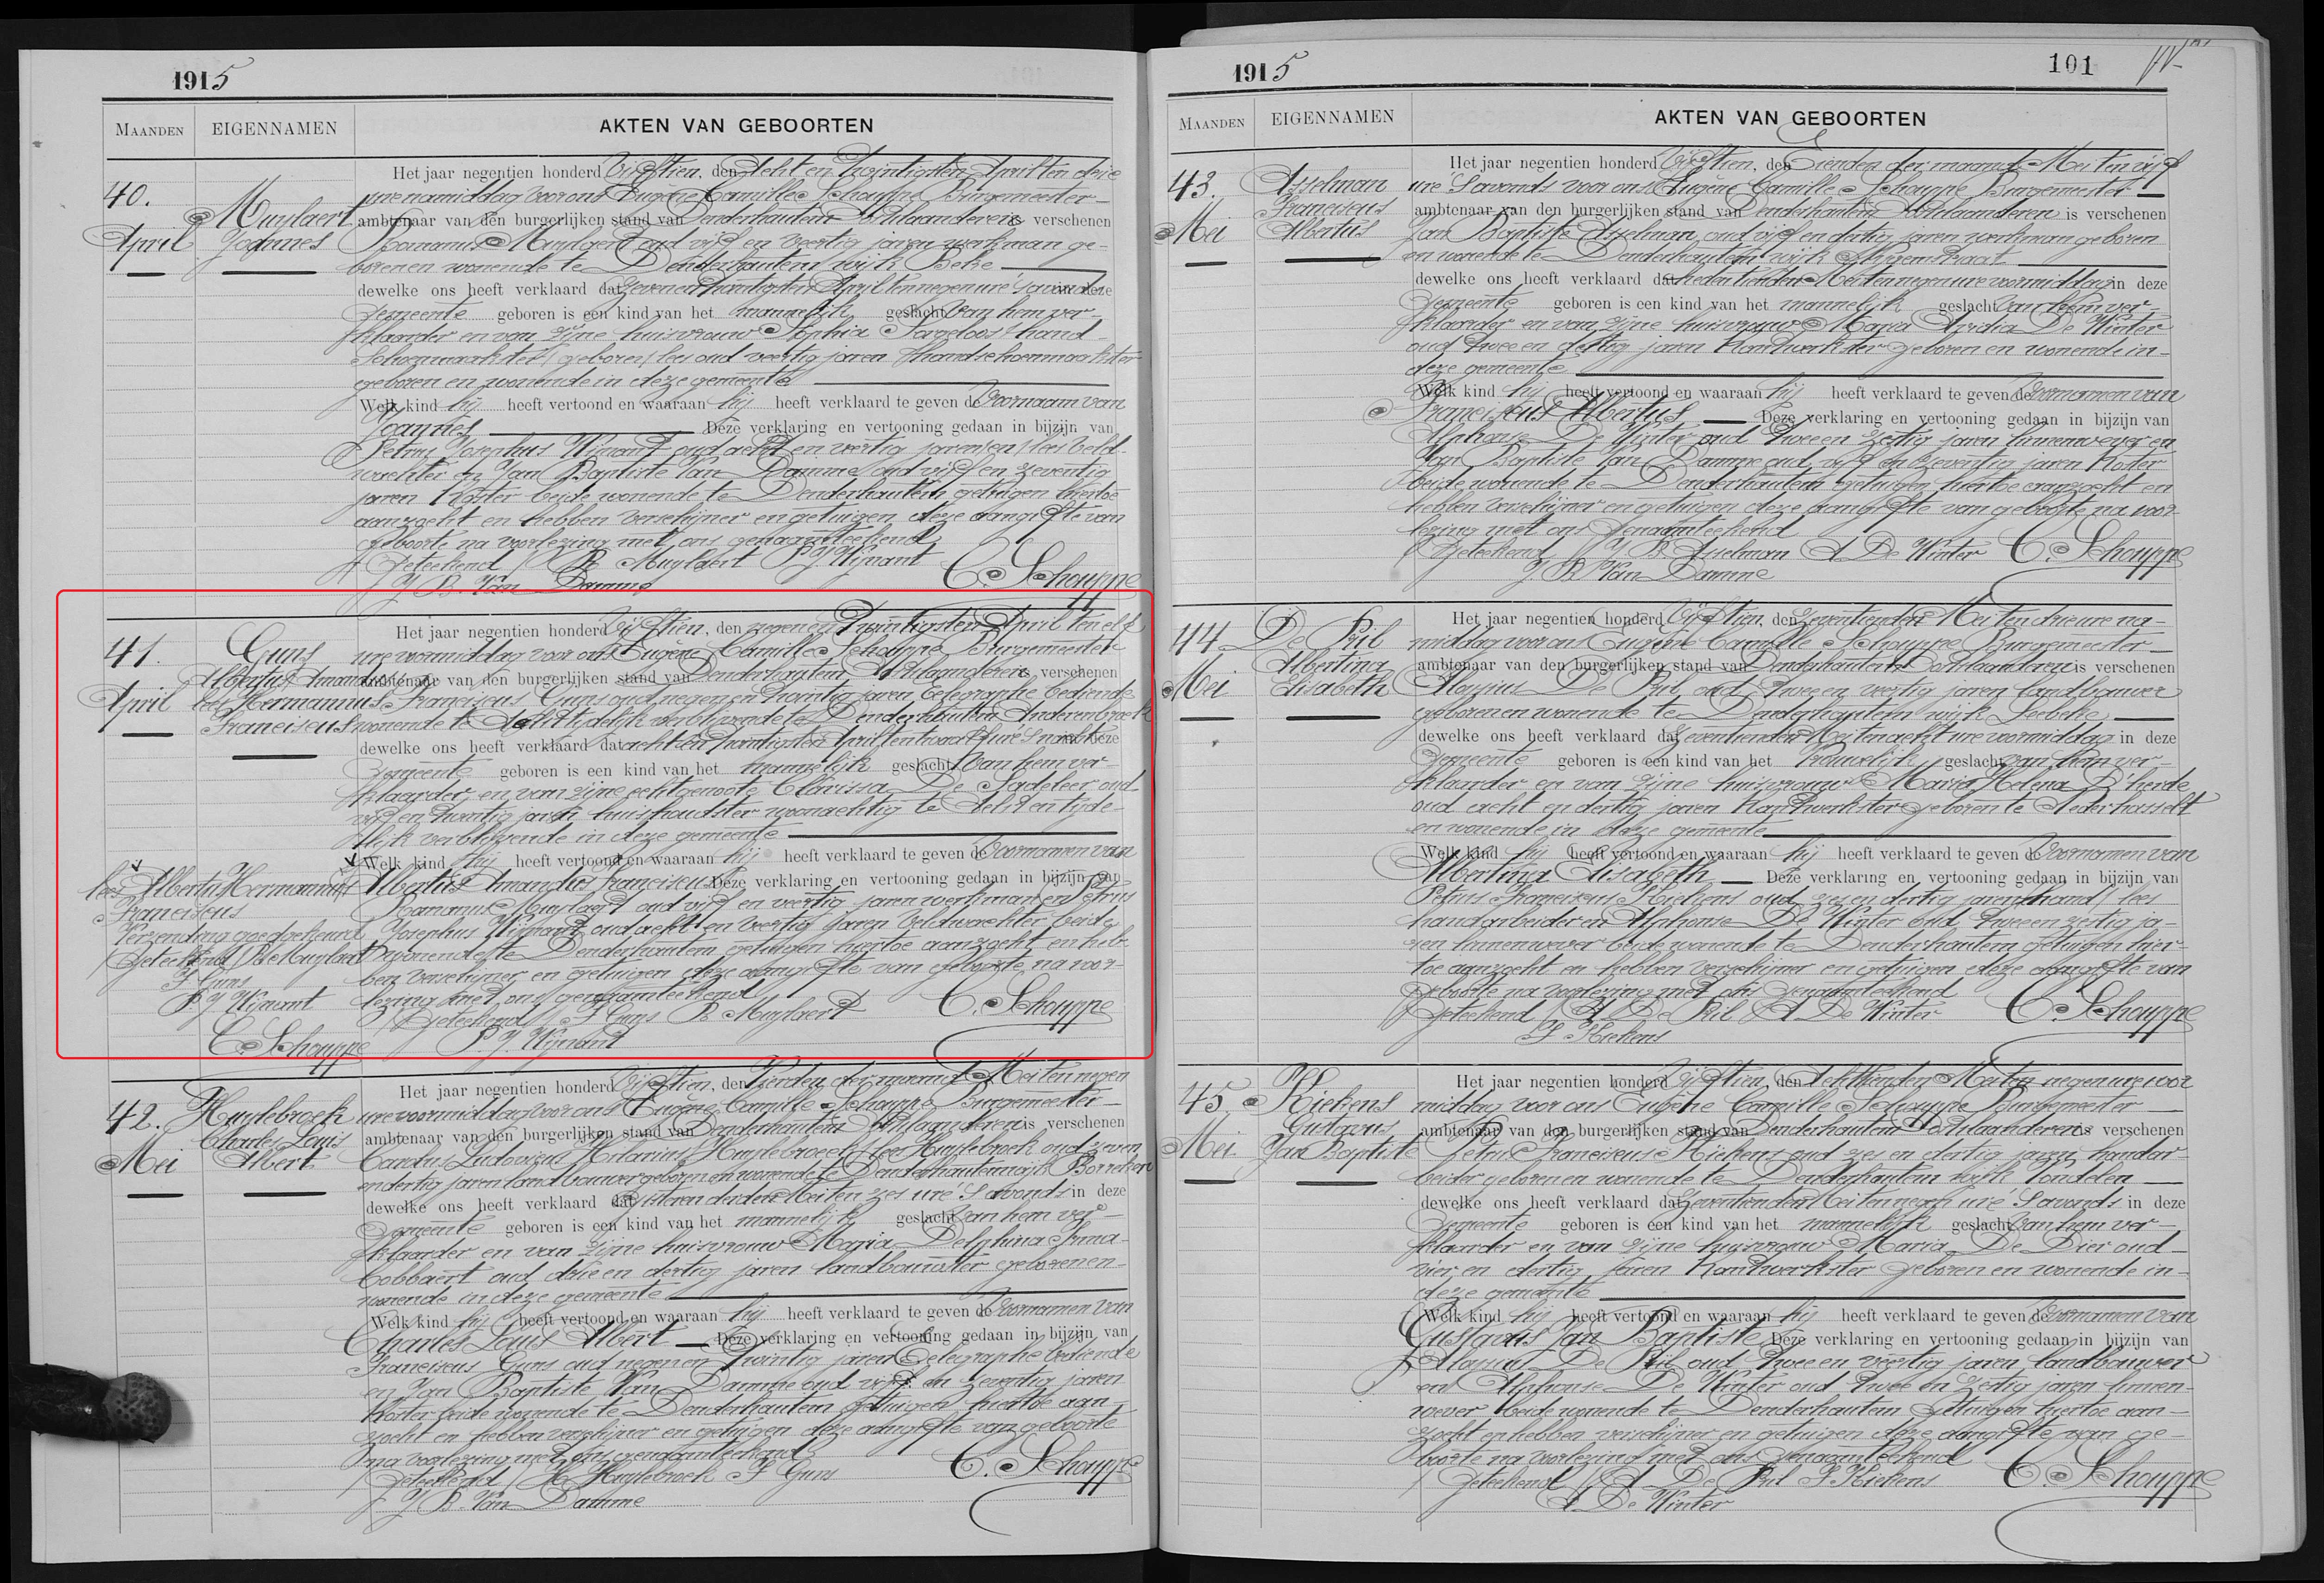 1915
MAANDEN EIGENNAMEN AKTEN VAN GEBOORTEN
40.
April
Muylaert
Joannes
Het jaar negentien honderd Vijftien, den Acht en Twintigsten April ten drie
ure namiddag voor ons Eugène Camille Schouppe Burgemeester
ambtenaar van den burgerlijken stand van Denderhautem Oostvlaanderen is verschenen
Romanus Muylaert oud vijf en veertig jaren werkman ge-
boren en wonende te Denderhautem wijk Beke
dewelke ons heeft verklaard dat zeven en twintigsten April ten negen ure 's avonds in deze
Gemeente geboren is een kind van het mannelijk geslacht van hem ver-
klaarder en van zijne huisvrouw Sophia Sargeloos / hand
schoenmaakster / geboren / lees oud veertig jaren handschoenmaakster
geboren en wonende in deze gemeente
Welk kind hij heeft vertoond en waaraan hij heeft verklaard te geven de Voornaam van
Joannes Deze verklaring en vertooning gedaan in bijzijn van
Petrus Josephus Wijnant oud acht en veertig jaren / en / lees veld-
wachter en Jan Baptiste Van Damme oud vijf en zeventig
jaren Koster beide wonende te Denderhautem getuigen hiertoe
aanzocht en hebben verschijner en getuigen deze aangifte van
geboorte na voorlezing met ons genaamteekend
/ Geteekend / R. Muylaert P. J. Wijnant C. Schouppe
J. B. Van Damme
41.
April
Guns
Albertus Amandus
lees Hermannus
Franciscus
Het jaar negentien honderd Vijftien, den negen en Twintigsten April ten elf
ure voormiddag voor ons Eugène Camille Schouppe Burgemeester
ambtenaar van den burgerlijken stand van Denderhautem Oostvlaanderen is verschenen
Franciscus Guns oud negen en twintig jaren telegraphe bediende
wonende te Aelst tijdelijk verblijvende te Denderhautem Anderenbroek
dewelke ons heeft verklaard dat acht en twintigsten April ten twaalf ure 's nachts in deze
Gemeente geboren is een kind van het mannelijk geslacht van hem ver-
klaarder en van zijne echtgenoote Clarissa De Sadeleer oud
vijf en twintig jaren huishoudster woonachtig te Aelst en tijde-
lijk verblijvende in deze gemeente
Welk kind hij heeft vertoond en waaraan hij heeft verklaard te geven de Voornamen van
Albertus Amandus Franciscus Deze verklaring en vertooning gedaan in bijzijn van
Romanus Muylaert oud vijf en veertig jaren werkman en Petrus
Josephus Wijnant oud acht en veertig jaren veldwachter beide
wonende te Denderhautem getuigen hiertoe aanzocht en heb-
ben verschijner en getuigen deze aangifte van geboorte na voor-
lezing met ons genaamteekend
/ Geteekend / F Guns R. Muylaert C. Schouppe
P. J. Wijnant
lees Albertus Hermannus
Franciscus
Verzending goedgekeurd
/ Geteekend / R. Muylaert
F. Guns
P. J. Wijnant
C. Schouppe
42.
Mei
Huylebroek
Charles Louis
Albert
Het jaar negentien honderd Vijftien, den Vierden der maand Mei ten negen
ure voormiddag voor ons Eugène Camille Schouppe Burgemeester
ambtenaar van den burgerlijken stand van Denderhautem Oostvlaanderen is verschenen
Carolus Ludovicus Hilarius Huylebroeck / lees Huylebroek oud zeven
en dertig jaren landbouwer geboren en wonende te Denderhautem wijk Borrekent
dewelke ons heeft verklaard dat gisteren derden Mei ten zes ure 's avonds in deze
Gemeente geboren is een kind van het mannelijk geslacht van hem ver-
klaarder en van zijne huisvrouw Maria Delphina Irma
Cobbaert oud drie en dertig jaren landbouwster geboren en
wonende in deze gemeente
Welk kind hij heeft vertoond en waaraan hij heeft verklaard te geven de Voornamen van
Charles Louis Albert Deze verklaring en vertooning gedaan in bijzijn van
Franciscus Guns oud negen en twintig jaren telegraphe bediende
en Jan Baptiste Van Damme oud vijf en zeventig jaren
koster beide wonende te Denderhautem getuigen hiertoe aan-
zocht en hebben verschijner en getuigen deze aangifte van geboorte
na voorlezing met ons genaamteekend
/ Geteekend / H Huylebroek F Guns C. Schouppe
J. B. Van Damme
1915 101
MAANDEN EIGENNAMEN AKTEN VAN GEBOORTEN
43.
Mei
Asselman
Franciscus
Albertus
Het jaar negentien honderd Vijftien, den Tienden der maand Mei ten vijf
ure 's avonds voor ons Eugène Camille Schouppe Burgemeester
ambtenaar van den burgerlijken stand van Denderhautem Oostvlaanderen is verschenen
Jan Baptiste Asselman oud vijf en dertig jaren werkman geboren
en wonende te Denderhautem wijk
dewelke ons heeft verklaard dat heden tienden Mei ten negen ure voormiddag in deze
Gemeente geboren is een kind van het mannelijk geslacht van hem ver-
klaarder en van zijne huisvrouw Maria Ovidia De Winter
oud twee en dertig jaren Kantwerkster geboren en wonende in-
deze gemeente
Welk kind hij heeft vertoond en waaraan hij heeft verklaard te geven de Voornamen van
Franciscus Albertus Deze verklaring en vertooning gedaan in bijzijn van
Alphonse De Winter oud twee en zestig jaren linnenwever en
Jan Baptiste Van Damme oud vijf en zeventig jaren Koster
beide wonende te Denderhautem getuigen hiertoe aanzocht en
hebben verschijner en getuigen deze aangifte van geboorte na voor-
lezing met ons genaamteekend
/ Geteekend / J B Asselman A De Winter C. Schouppe
J. B. Van Damme
44
Mei
De Pril
Albertina
Elisabeth
Het jaar negentien honderd Vijftien, den zeventienden Mei ten drie ure na-
middag voor ons Eugène Camille Schouppe Burgemeester
ambtenaar van den burgerlijken stand van Denderhautem Oostvlaanderen is verschenen
Aloysius De Pril oud twee en veertig jaren landbouwer
geboren en wonende te Denderhautem wijk Leebeke
dewelke ons heeft verklaard dat zeventienden Mei ten acht ure voormiddag in deze
Gemeente geboren is een kind van het vrouwelijk geslacht van hem ver-
klaarder en van zijne huisvrouw Maria Helena D'herde
oud acht en dertig jaren Kantwerkster geboren te Nederhasselt
en wonende in deze gemeente
Welk kind hij heeft vertoond en waaraan hij heeft verklaard te geven de Voornamen van
Albertina Elisabeth Deze verklaring en vertooning gedaan in bijzijn van
Petrus Franciscus Kiekens oud zes en dertig jaren / hand / lees
handarbeider en Alphonse De Winter oud twee en zestig ja-
ren linnenwever beide wonende te Denderhautem getuigen hier-
toe aanzocht en hebben verschijner en getuigen deze aangifte van
geboorte na voorlezing met ons genaamteekend
/ Geteekend / A De Pril A De Winter C. Schouppe
F Kiekens
45.
Mei
Kiekens
Gustavus
Jan Baptiste
Het jaar negentien honderd Vijftien, den Achttienden Mei ten negen ure voor
middag voor ons Eugène Camille Schouppe Burgemeester
ambtenaar van den burgerlijken stand van Denderhautem Oostvlaanderen is verschenen
Petrus Franciscus Kiekens oud zes en dertig jaren handar-
beider geboren en wonende te Denderhautem wijk Vondelen
dewelke ons heeft verklaard dat zeventienden Mei ten negen ure 's avonds in deze
Gemeente geboren is een kind van het mannelijk geslacht van hem ver-
klaarder en van zijne huisvrouw Maria De Dier oud
vier en dertig jaren Kantwerkster geboren en wonende in-
deze gemeente
Welk kind hij heeft vertoond en waaraan hij heeft verklaard te geven de Voornamen van
Gustavus Jan Baptiste Deze verklaring en vertooning gedaan in bijzijn van
Aloysius De Pril oud twee en veertig jaren landbouwer
en Alphonse De Winter oud twee en zestig jaren linnen-
wever beide wonende te Denderhautem getuigen hiertoe aan-
zocht en hebben verschijner en getuigen deze aangifte van ge-
boorte na voorlezing met ons genaamteekend
/ Geteekend / A De Pril F Kiekens C. Schouppe
A De Winter